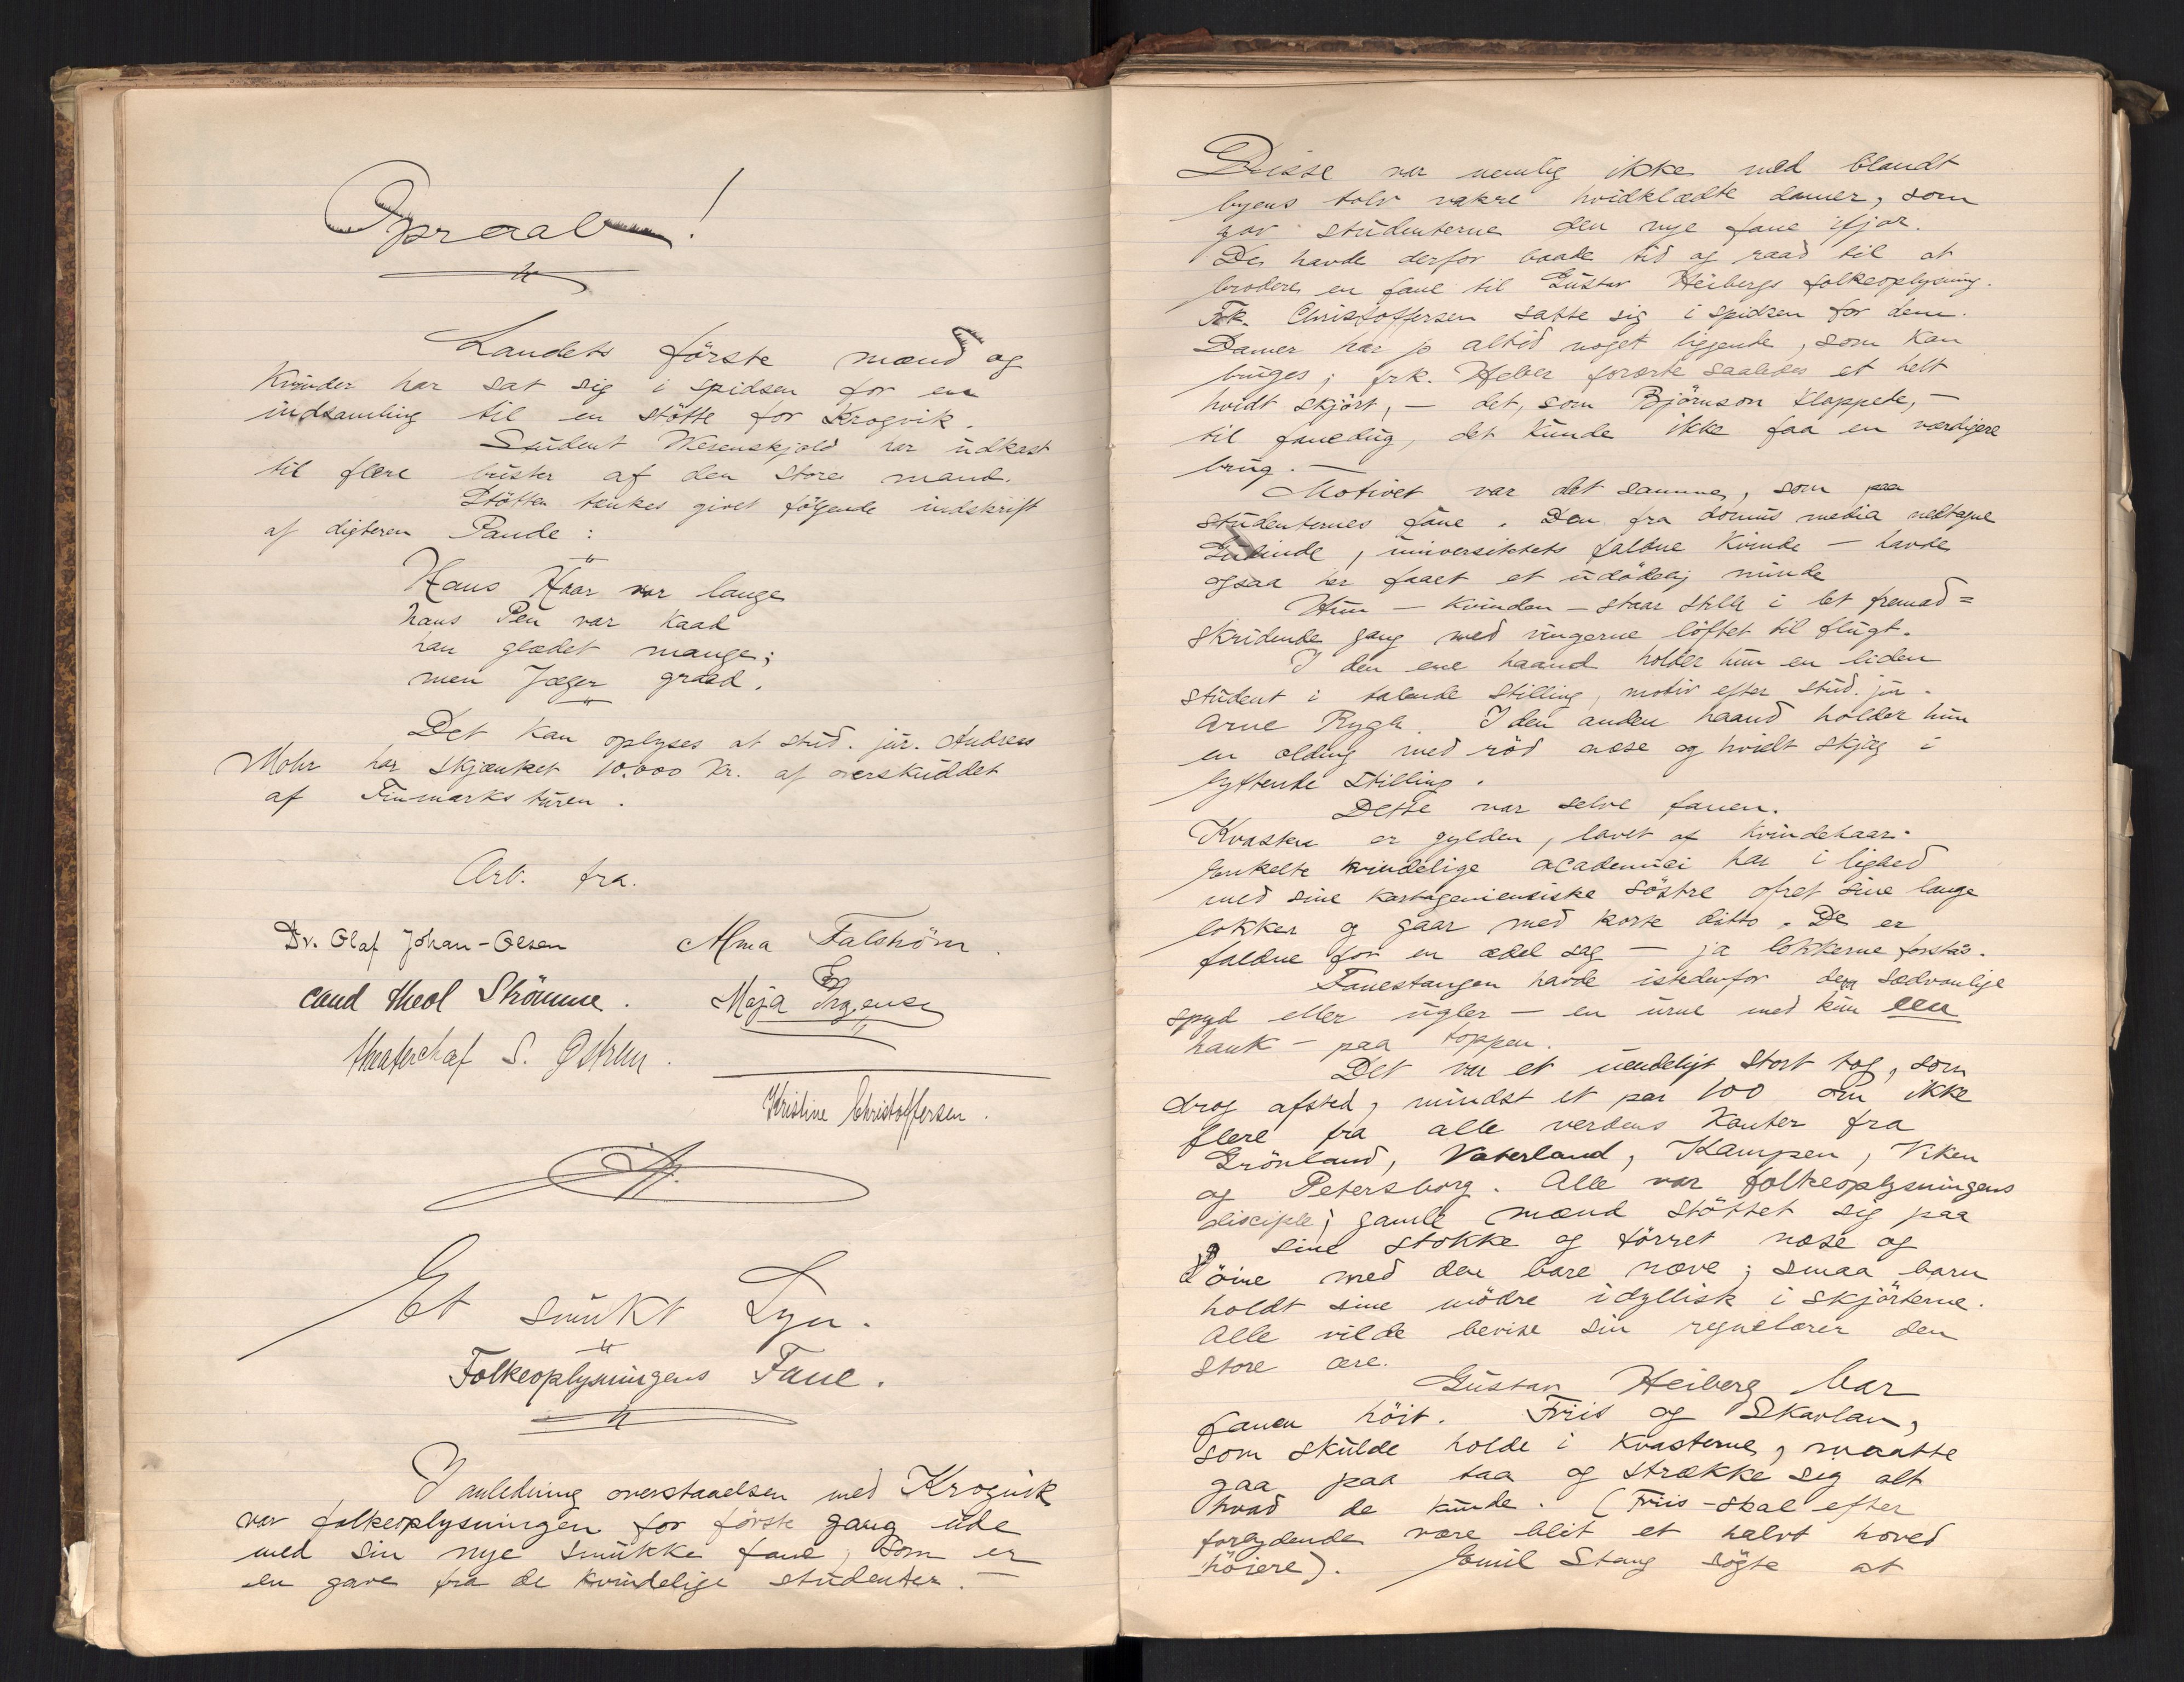 Opraab!
Landets förste mænd og
Kvinder har sat sig i spidsen for en
indsamling til en stötte for Krogvik.
Student Wesenskjold har udkast
til flere büster af den store mand.
Stötten tænkes givet fölgende indskrift
af digteren Paude:
Hans Haar var lange
hans Pen var kaad
han glædet mange;
men Jæger græd.
Det kan oplyses at stud. jur. Andreas
Mohr har skjænket 10.000 kr. af overskuddet
af Finmarksturen.
Arb. fra.
Dr. Olaf Johan-Olsen
Alma Falström.
cand theol Strömme.
Maja
theaterchef S. Østrem.
Kristine Christoffersen.
Et smukt Syn.
Folkeoplysningens Fane.
I anledning overstaaelsen med Krogvik
var folkeoplysningen for förste gang ude
med sin nye smukke fane, som er
en gave fra de kvindelige studenter. —
Disse var nemlig ikke med blandt
byens tolv vakre hvidklædte damer, som
gav studenterne den nye fane ifjor.
De havde derfor baade tid og raad til at
brodere en fane til Gustav Heibergs folkeoplysning.
Frk. Christoffersen satte sig i spidsen for dem.
Damer har jo altid noget liggende, som kan
bruges; frk. Heber forærte saaledes et helt
hvidt skjört, — det, som Björnson klappede, —
til fanedug, det kunde ikke faa en værdigere
brug. —
Motivet var det samme, som paa
studenternes fane. Den fra domus media nedtagne
Gudinde, universitetets faldne kvinde — havde
ogsaa her faaet et udödelig minde
Hun — kvinden — staar stille i let fremad=
skridende gang med vingerne löftet til flugt.
I den ene haand holder hun en liden
student i talende stilling, motiv efter stud. jur.
Arne Rygh. I den anden haand holder hun
en olding med röd næse og hvidt skjæg i
lyttende stilling.
Dette var selve fanen.
Kvasten er gylden, lavet af kvindehaar.
Enkelte kvindelige academici har i lighed
med sine kartageniensiske söstre ofret sine lange
lokker og gaar med korte ditto. De er
faldne for en ædel sag — ja lokkerne forstås.
Fanestangen havde istedenfor den sædvanlige
spyd eller ugler — en urne med kun een
hank — paa toppen.
Det var et uendeligt stort tog, som
drog afsted, mindst et par 100 om ikke
flere fra alle verdens kanter fra
Grönland, Vaterland, Kampen, Viken
og Petersborg. Alle var folkeoplysningens
disciple; gamle mænd stöttet sig paa
sine stokke og törret næse og
öine med den bare næve; smaa barn
holdt sine mödre idyllisk i skjörterne.
Alle vilde bevise sin regnelærer den
store ære.
Gustav Heiberg bar
fanen höit. Friis og Skavlan,
som skulde holde i kvasterne, maatte
gaa paa taa og strække sig alt
hvad de kunde. (Friis - skal efter
forlydende være blit et halvt hoved
höiere). Emil Stang sögte at